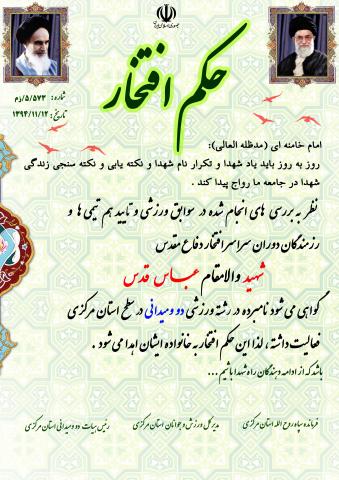 جمهوری اسلامی ایران
شماره : ۵/۵۷۳/دم
تاریخ : ۱۳۹۴/۱۱/۱۲
حکم افتخار
امام خامنه ای (مدظله العالی):
روز به روز باید یاد شهدا و تکرار نام شهدا و نکته یابی و نکته سنجی زندگی
شهدا در جامعه ما رواج پیدا کند .
نظر به بررسی های انجام شده در سوابق ورزشی و تایید هم تیمی ها و
رزمندگان دوران سراسر افتخار دفاع مقدس
شهید والامقام عباس قدس
گواهی می شود نامبرده در رشته ورزشی دو ومیدانی در سطح استان مرکزی
فعالیت داشته ، لذا این حکم افتخار به خانواده ایشان اهدا می شود .
باشد که از ادامه دهندگان راه شهدا باشیم ...
فرمانده سپاه روح الله استان مرکزی
مدیر کل ورزش و جوانان استان مرکزی
رئیس هیات دو ومیدانی استان مرکزی